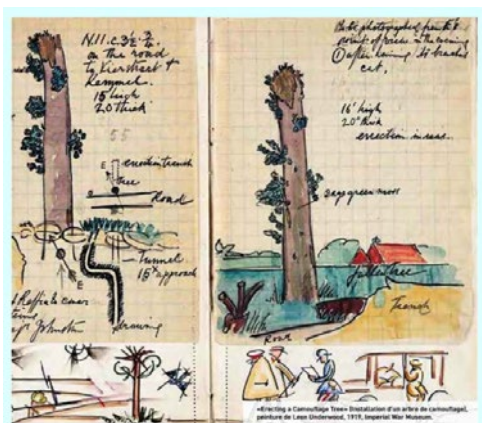 N.11.c.3½.
on the road
to Vierstraat &
Kemmel.
15' high
20" thick
55
E
erection trench
tree
Road
tunnel
15' approach
E
Raffia to cover
Johnston
drawing
photographed
point of
in the evening
① after having its branches
cut.
16' high
20" thick
erection in rear.
sage green moss
fallen tree
Trench
Road
«Erecting a Camouflage Tree» (Installation d'un arbre de camouflage),
peinture de Leon Underwood, 1919, Imperial War Museum.